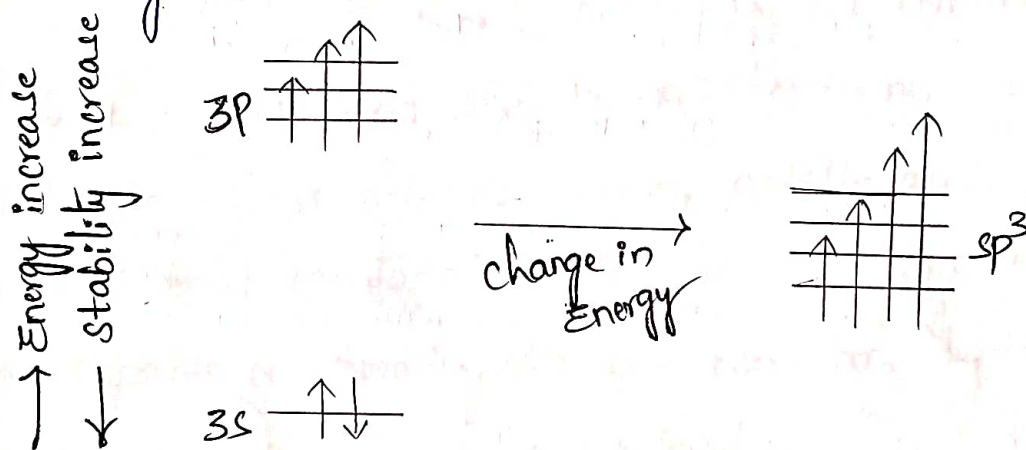 Energy increase
stability increase
3P
3S
change in
Energy
sp³